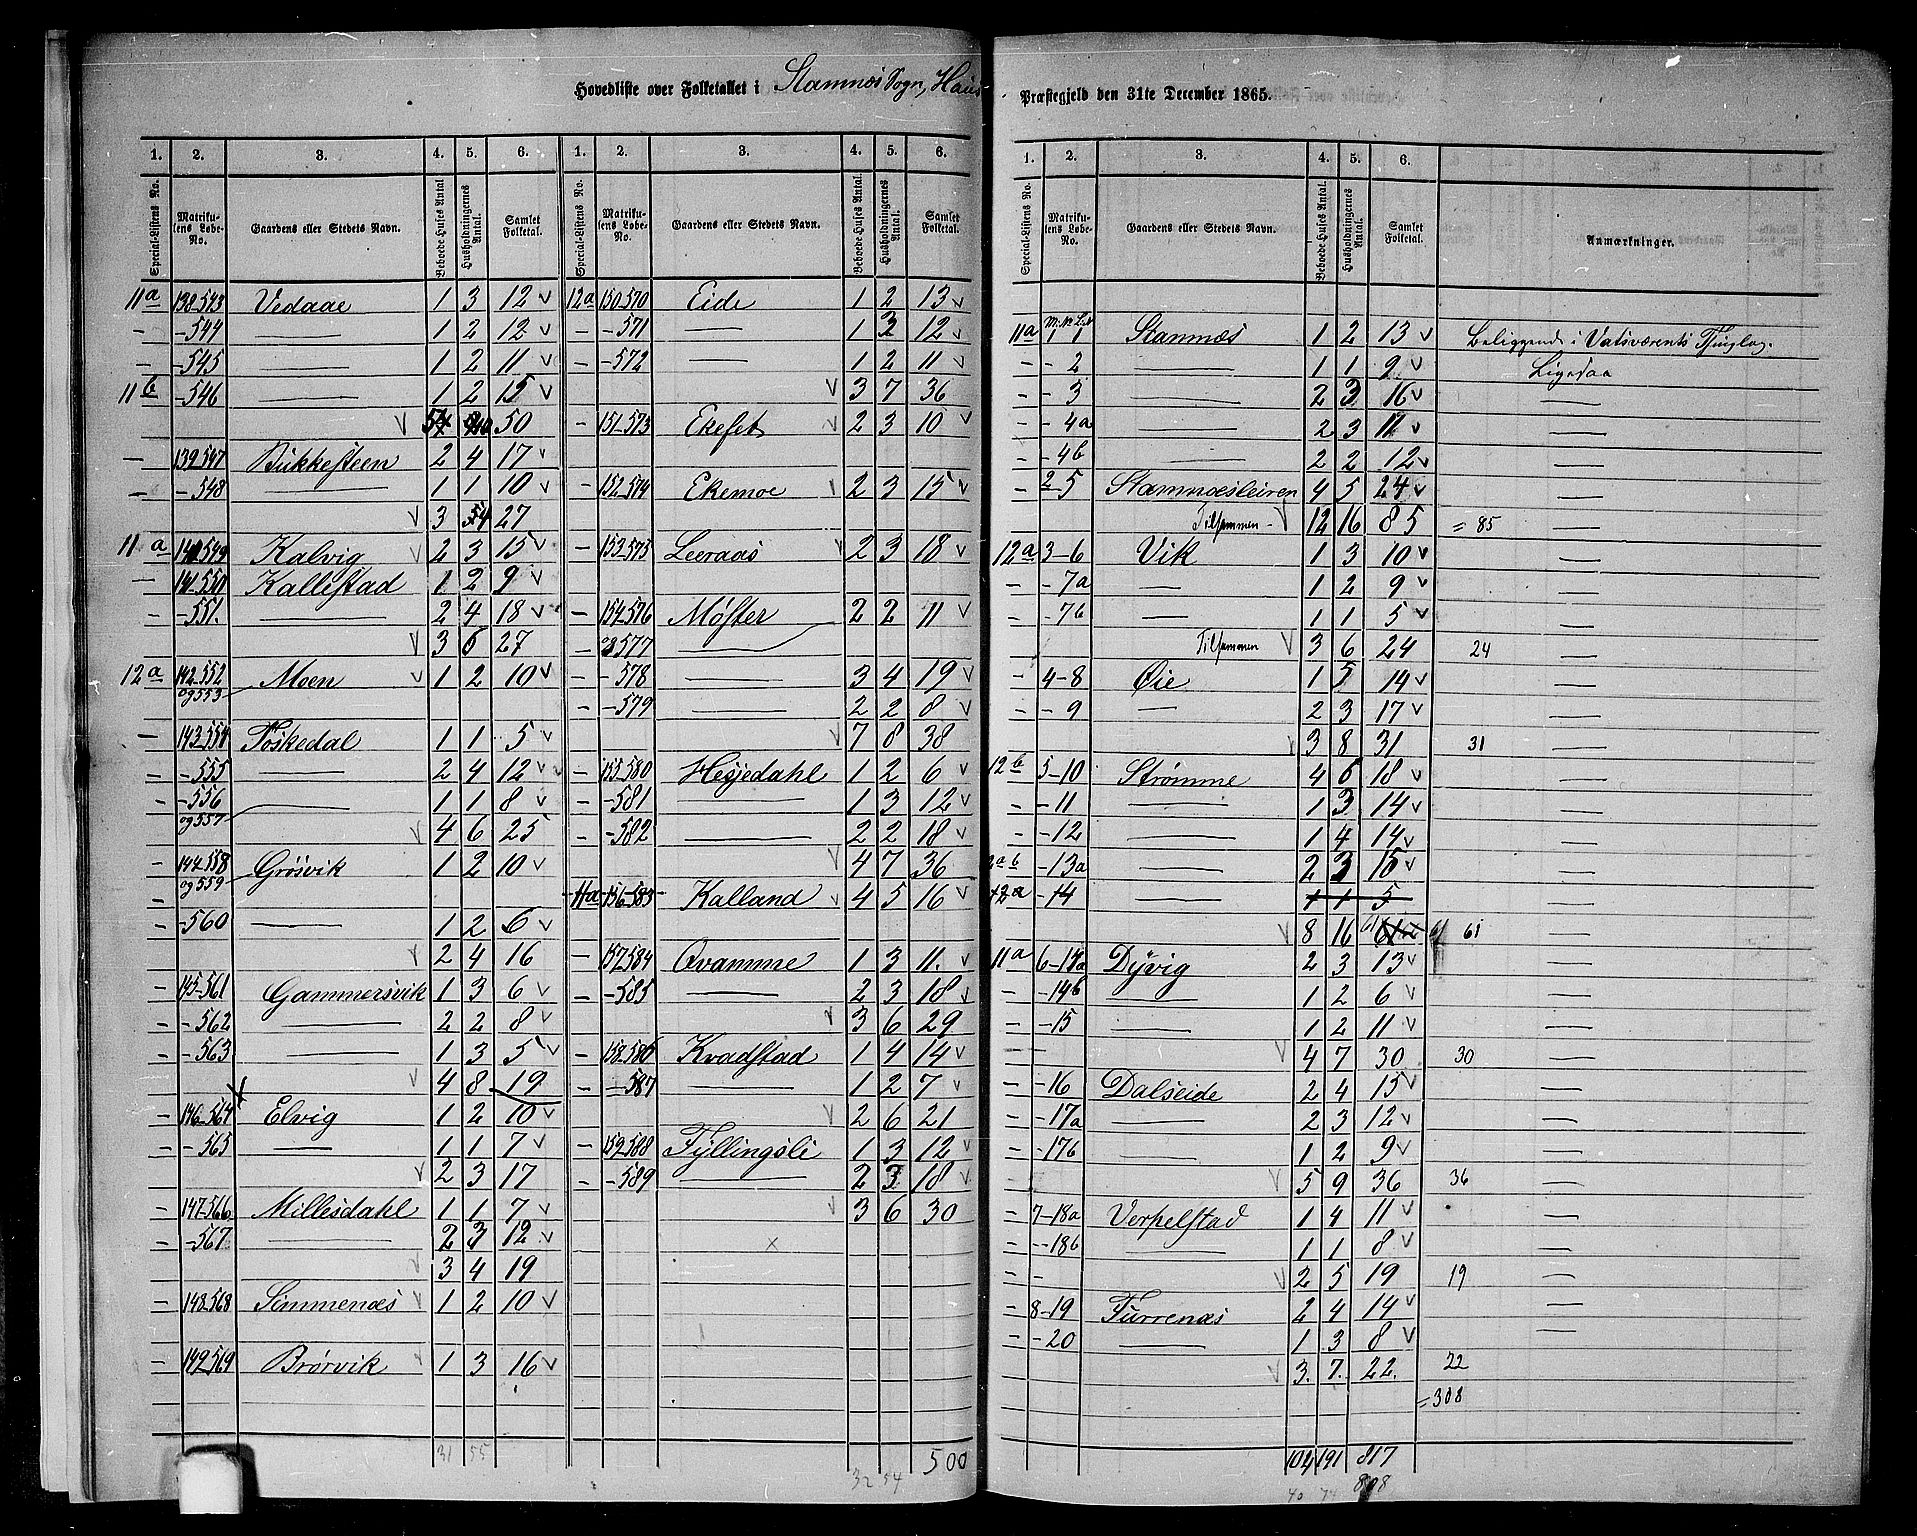 Hovedliste over Folketallet i Stamnæs Sogn, Haus Præstegjeld den 31te December 1865.
1. 2. 3. 4. 5. 6. 1. 2. 3. 4. 5. 6.
Special-Listens No. Matrikulens Løbe-No. Gaardens eller Stedets Navn. Beboede Huses Antal Husholdningernes Antal. Samlet Folketal. Special-Listens No. Matrikulens Løbe-No. Gaardens eller Stedets Navn. Beboede Huses Antal. Husholdningernes Antal. Samlet Folketal.
11a 138-543 Vedaae 1 3 12 v
- -544 — 1 2 12 v
- -545 — 1 2 11 v
11b -546 — 1 2 15 v
v 50
- 139-547 Bukkesteen 2 4 17 v
- -548 — 1 1 10 v
v 3 27
11a 140-549 Kalvig v 2 3 15 v
- 141-550 Kallestad 1 2 9 v
- -551. — 2 4 18 v
v 3 6 27
12a 142-552 og 553 Moen v 1 2 10 v
- 143-554 Toskedal 1 1 5 v
- -555 — 2 4 12 v
- -556 og 557 — 1 1 8 v
v 4 6 25
- 144-558 og 559 Grøsvik 1 2 10 v
- -560 — 1 2 6 v
v 2 4 16
- 145-561 Gammersvik 1 3 6 v
- -562 — 2 2 8 v
- -563 — 1 3 5 v
v 4 8 19
- 146-564 Elvig 1 2 10 v
- -565 — 1 1 7 v
v 2 3 17
- 147-566 Millesdahl 1 1 7 v
- -567 — 2 3 12 v
v 3 4 19
- 148-568 Simmenæs v 1 2 10 v
- 149-569 Brørvik v 1 3 16 v
31 55
12a 150-570 Eide 1 2 13 v
- -571 — 1 3 12 v
- -572 — 1 2 11 v
v 3 7 36
- 151-573 Ekeset v 2 3 10 v
- 152-574 Ekemoe v 2 3 15 v
- 153-575 Leeraas v 2 3 18 v
- 154-576 Møster 2 2 11 v
- og 577 —
- -578 — 3 4 19 v
- -579 — 2 2 8 v
v 7 8 38
- 155-580 Hesjedahl 1 2 6 v
- -581 — 1 3 12 v
- -582 — 2 2 18 v
v 4 7 36
11a 156-583 Kalland v 4 5 16 v
- 157-584 Qvamme 1 3 11. v
- -585 — 2 3 18 v
v 3 6 29
- 158-586 Kvadstad 1 4 14 v
- -587 — 1 2 7 v
v 2 6 21
- 159-588 Fyllingsli 1 3 12 v
- -589 — 2 3 18 v
v 3 6 30
x
500
32 54
1. 2. 3. 4. 5. 6.
Special-Listens No. Matrikulens Løbe-No. Gaardens eller Stedets Navn. Beboede Huses Antal. Husholdningernes Antal. Samlet Folketal. Anmærkninger.
11a 1 1 Stamnæs 1 2 13 v Beliggende i Vatsværents Thinglag.
- -2 — 1 1 9 v Ligesaa
- -3 — 2 3 16 v —
- -4a — 2 3 11 v —
- -4b — 2 2 12 v —
- 2-5 Stamnæsleiren 4 5 24 v —
Tilsammen - v 12 16 85 = 85 —
12a 3-6 Vik 1 3 10 v —
- -7a — 1 2 9 v —
- -7b — 1 1 5 v —
Tilsammen v 3 6 24 24 —
- 4-8 Øie 1 5 14 v —
- -9 — 2 3 17 v —
v 3 8 31 31 —
12b 5-10 Strømme 4 6 18 v —
- -11 — 1 3 14 v —
- -12 — 1 4 14 v —
-13a — 2 3 15 v —
12a -14 — 1 1 5 —
v 8 16 61 61 —
11a 6-14a Dyvig 2 3 13 v —
- -14b — 1 2 6 v —
- -15 — 1 2 11 v —
v 4 7 30 30 —
- -16 Dalseide 2 4 15 v —
- -17a — 2 3 12 v —
- -17b — 1 2 9 v —
v 5 9 36 36 —
- 7-18a Verpelstad 1 4 11 v —
- -18b — 1 1 8 v —
v 2 5 19 19 —
- 8-19 Furrenæs 2 4 14 v —
- -20 — 1 3 8 v —
v 3. 7. 22. 22 —
= 308
104 191 817
40 74 808